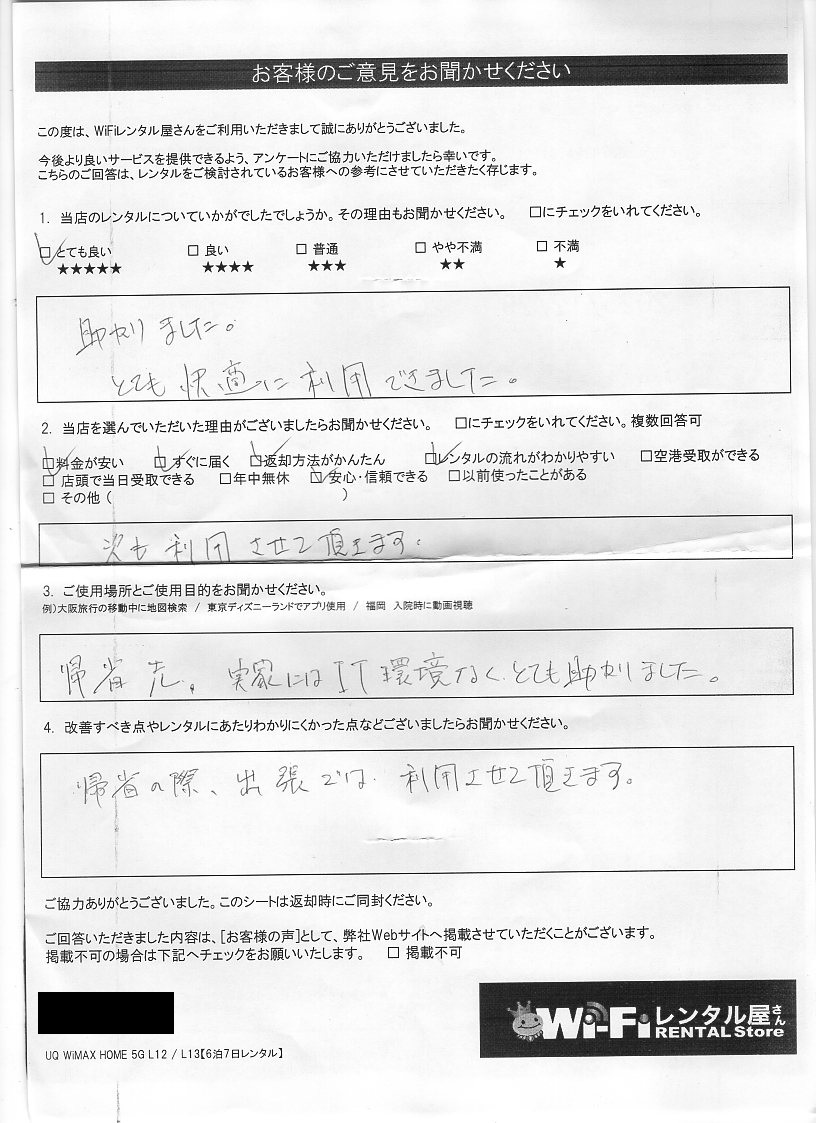 お客様のご意見をお聞かせください
この度は、WiFiレンタル屋さんをご利用いただきまして誠にありがとうございました。
今後より良いサービスを提供できるよう、アンケートにご協力いただけましたら幸いです。
こちらのご回答は、レンタルをご検討されているお客様への参考にさせていただきたく存じます。
1. 当店のレンタルについていかがでしたでしょうか。その理由もお聞かせください。 □にチェックをいれてください。
☑ とても良い □ 良い □ 普通 □ やや不満 □ 不満
★★★★★ ★★★★ ★★★ ★★ ★
助かりました。
とても快適に利用できました。
2. 当店を選んでいただいた理由がございましたらお聞かせください。 □にチェックをいれてください。複数回答可
☑料金が安い ☑すぐに届く ☑返却方法がかんたん ☑レンタルの流れがわかりやすい □空港受取ができる
□ 店頭で当日受取できる □年中無休 ☑安心・信頼できる □以前使ったことがある
□ その他 ( )
次も利用させて頂きます.
3. ご使用場所とご使用目的をお聞かせください。
例)大阪旅行の移動中に地図検索 / 東京ディズニーランドでアプリ使用 / 福岡 入院時に動画視聴
帰省先。実家にはIT環境なく、とても助かりました。
4. 改善すべき点やレンタルにあたりわかりにくかった点などございましたらお聞かせください。
帰省の際、出張では、利用させて頂きます。
ご協力ありがとうございました。このシートは返却時にご同封ください。
ご回答いただきました内容は、[お客様の声]として、弊社Webサイトへ掲載させていただくことがございます。
掲載不可の場合は下記へチェックをお願いいたします。 □ 掲載不可
Wi-Fiレンタル屋さん
RENTAL Store
UQ WiMAX HOME 5G L12 / L13【6泊7日レンタル】